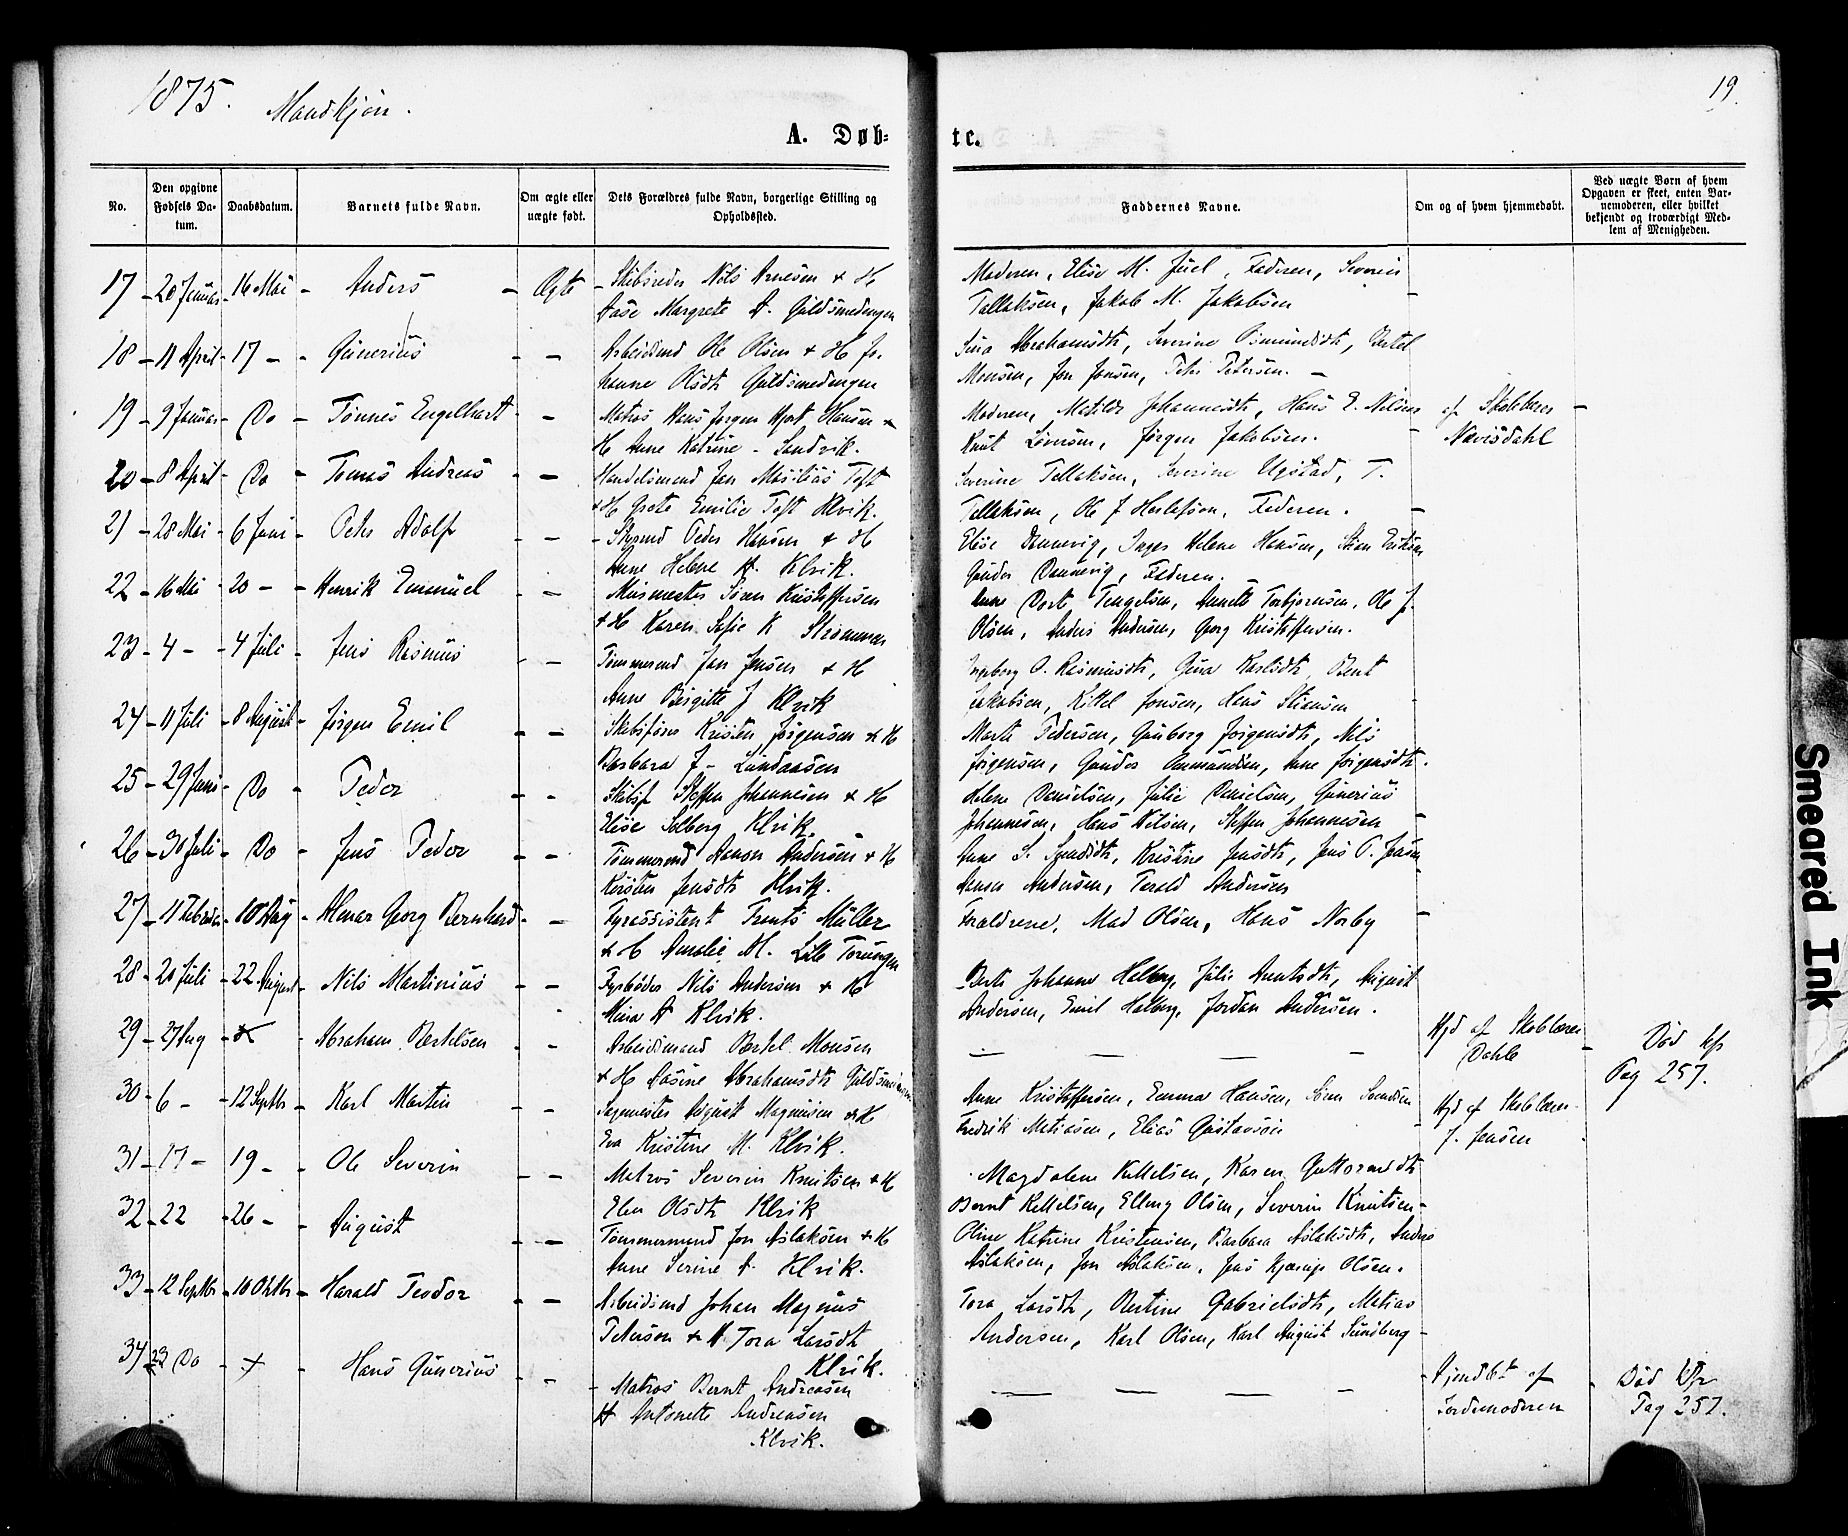 1875.
Mandkjøn.
19.
A. Døb-
te.
No.
Den opgivne Fødsels Da-tum.
Daabsdatum.
Barnets fulde Navn.
Om ægte eller uægte født.
Dets Forældres fulde Navn, borgerlige Stilling og Opholdssted.
Faddernes Navne.
Om og af hvem hjemmedøbt.
Ved uægte Børn af hvem Opgaven er skeet, enten Bar-nemoderen, eller hvilket bekjendt og troværdigt Med-lem af Menigheden.
17 - 20 Januar - 16 Mai - Anders - Ægte - Skibsreder Nils Arnesen + H
Aase Margrete A. Guldsmedengen
Moderen, Elise M. Juel, Faderen, Severin
Tellefsen, Jakob M. Jakobsen
18 - 11 April - 17 - - Gunerius - - Arbeidsmd Ole Olsen + H Jo-
hanne Olsdtr Guldsmedengen
Sina Abrahamsdtr, Severine Osmundsdtr, Bertel
Monsen, Jon Jonsen, Peder Pedersen. -
19 - 9 Januar - Do - Tønnes Engelhart - - Matros Hans Jørgen Hjort Hansen +
H Anne Katrine - Sandvik.
Moderen, Matilde Johannesdtr, Hans E. Nilsen
Knut Larsen, Jørgen Jakobsen. -
af Skolelærer -
Nævisdahl
20 - 8 April - Do - Tomas Andreas - - Handelsmand Jan Matias Toft
+ H Grete Emilie Toft Klvik.
Severine Tellefsen, Severine Ugstad, T.
Tellefsen, Ole J Herlofson, Faderen. -
21 - 28 Mai - 6 Juni - Peder Adolf - - - Styrmd Peder Hansen + H
Anne Helene H. Klvik.
Elise Dannevig, Inger Helene Hansen, Stian Eriksen
Gunder Dannevig, Faderen. -
22 - 16 Mai - 20 - - Henrik Emanuel - - Murmester Søren Kristoffersen
+ H Karen Sofie K Strømmen
Anne Dort. Tengelsen, Annette Torbjørnsen, Ole J.
Olsen, Anders Andersen, Georg Kristoffersen.
23 - 4 - - 4 Juli - Jens Rasmus - - Tømmermd Jan Jensen + H
Anne Birgitte J Klvik
Ingeborg O. Rasmusdtr, Gina Karlsdtr Bent
Jakobsen, Kittel Jonsen, Hans Stiansen
24 - 11 Juli - 8 August - Jørgen Emil - - Skibsfører Kristen Jørgensen + H
Barbara J - Lundaasen
Marte Pedersen, Gunborg Jørgensdtr, Nils
Jørgensen, Gunder Anmundsen, Anne Jørgensdtr.
25 - 29 Juni - Do - Peder - - Skibsf Steffen Johannesen + H
Elise Solberg Klvik.
Helene Danielsen, Julie Danielsen, Gunerius
Johannesen, Hans Nilsen, Steffen Johannesen -
26 - 30 Juli - Do - Jens Peder - - Tømmermd Aanon Andersen + H
Kirsten Jensdtr Klvik.
Anne S. Syvertsdtr, Kristine Jensdtr, Jens P. Jensen
Aanon Andersen, Terald Andersen
27 - 11 Februar - 10 Aug - Almar Georg Bernhard - - Fyrassistent Frants Müller
+ H Amalie M. Lille Torungen
Forældrene, Mad Olsen, Hans Norby -
28 - 20 Juli - 22 August - Nils Martinius - - Fyrbøder Nils Andersen + H
Mina A Klvik.
Berte Johanne Helberg, Julie Arntsdtr, August
Andersen, Emil Helberg, Jordan Andersen.
29 - 27 Aug - + - Abraham Bertelsen - - Arbeidsmand Bertel Monsen
+ H Aasine Abrahamsdtr Guldsmedengen
- - - -
Hjd af Skolelærer -
Dahle
Død Kfr
Pag 257.
30 - 6 - - 12 Septbr - Karl Martin - - Sagmester August Magnusen + H
Eva Kristine M. Klvik.
Anne Kristoffersen, Emma Hansen, Søren Svendsen
Fredrik Matiasen, Elias Gustavsen
Hjd af Skolelærer
J. Jensen
31 - 17 - - 19 - - Ole Severin - - Matros Severin Knutsen + H
Elen Olsdtr Klvik
Magdalene Kittelsen, Karen Guttormsdtr
Bernt Kittelsen, Elling Olsen, Severin Knutsen -
32 - 22 - 26 - - August - - Tømmermand Jon Aslaksen + H
Anne Serine A. Klvik.
Oline Katrine Kristensen, Barbara Aslaksdtr, Anders
Aslaksen, Jon Aslaksen, Jens Kjærup Olsen.
33 - 12 Septbr - 10 Oktbr - Harald Teodor - - Arbeidsmd Johan Magnus
Petersen + H Tora Larsdtr
Klvik.
Tora Larsdtr, Bertine Gabrielsdtr, Matias
Andersen, Karl Olsen, Karl August Sundberg -
34 - 23 Do - + - Hans Gunerius - - - Matros Bernt Andreasen
H Antonette Andreasen
Klvik.
- - - -
Hjemdbt af
Jordemoderen
Død Kfr
Pag 257.
Smeared Ink